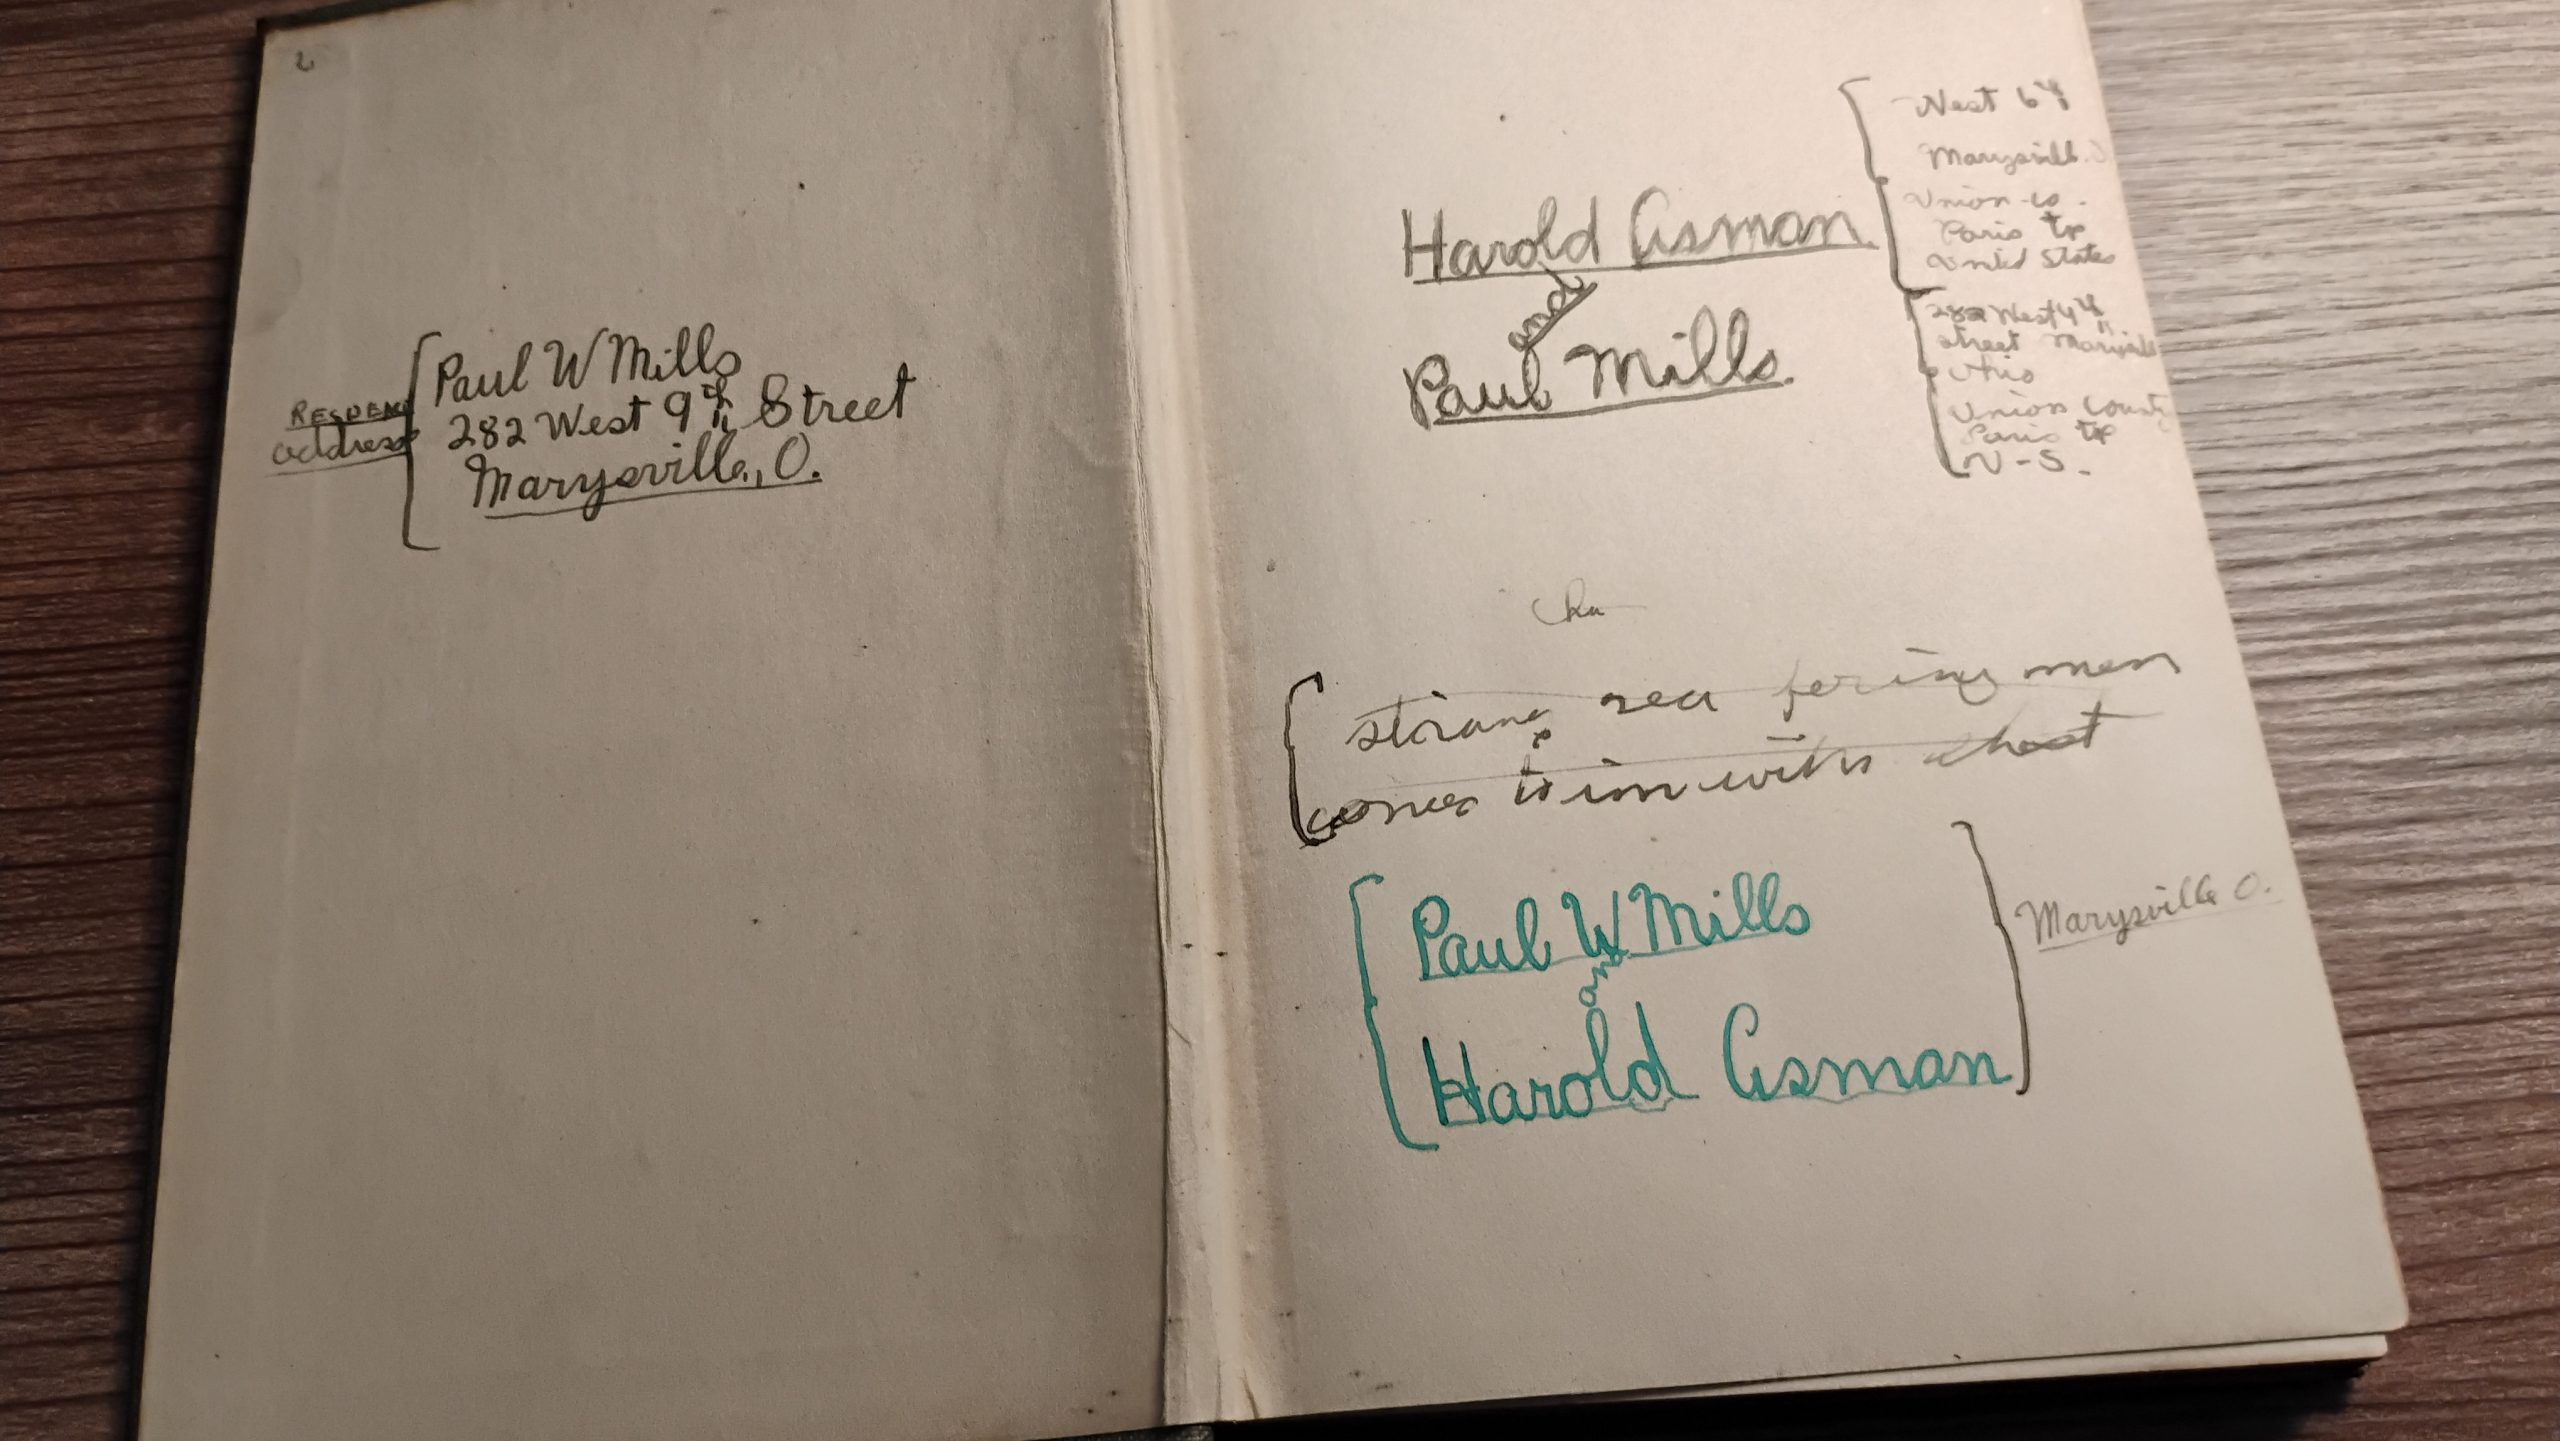 address
Paul W Mills
282 West 9th Street
Marysville, O.
Harold Asman
and
Paul Mills
West 6th
Marysville. O
Union co.
Paris tp
United States
282 West
street Marysville
Ohio
Union County
Paris tp
U-S.
Cha
strange sea fering men
comes to inn with chest
Paul W Mills
and
Harold Asman
Marysville O.